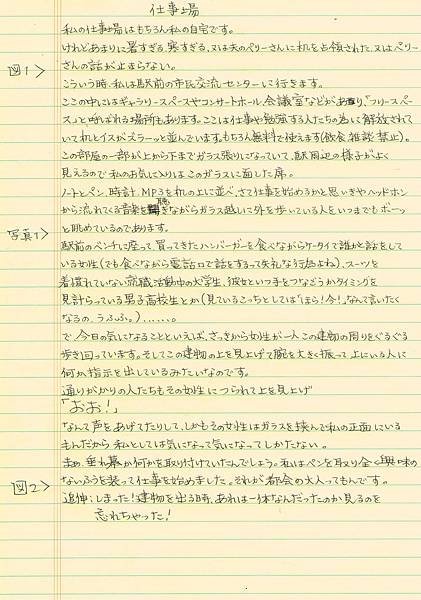 仕事場
私の仕事場はもちろん私の自宅です。
けれどあまりに暑すぎる、寒すぎる、又は夫のペリーさんに机を占領された、又はペリー
図1>
さんの話が止まらない。
こういう時、私は駅前の市民交流センターに行きます。
ここの中にはギャラリースペースやコンサートホール、会議室などがあり、「フリースペー
ス」と呼ばれる場所もあります。ここは仕事や勉強する人たちの為に解放されて
いて机とイスがズラーッと並んでいます。もちろん無料で使えます(飲食、雑談禁止)。
この部屋の一部が上から下までガラス張りになっていて、駅周辺の様子がよく
見えるので私のお気に入りはこのガラスに面した席。
ノートとペン、時計、MP3を机の上に並べ、さて仕事を始めるかと思いきやヘッドホン
から流れてくる音楽を聴きながらガラス越しに外を歩いている人をいつまでもボーッ
写真1>
と眺めているのであります。
駅前のベンチに座って、買ってきたハンバーガーを食べながらケータイで誰かと話をして
いる女性(でも食べながら電話口で話をするって失礼な行為よね)、スーツを
着慣れていない就職活動中の大学生、彼女といつ手をつなごうかタイミングを
見計らっている男子高校生とか(見ているこっちとしては「ほら!今!」なんて言いたく
なるの、うふふ。)......。
で、今日の気になることといえば、さっきから女性が一人この建物の周りをぐるぐる
歩き回っています。そしてこの建物の上を見上げて腕を大きく振って上にいる人に
何か指示を出しているみたいなのです。
通りがかりの人たちもその女性につられて上を見上げ
「おお!」
なんて声をあげてたりして、しかもその女性はガラスを挟んで私の正面にいる
もんだから私としては気になって気になってしかたがない。
まぁ、垂れ幕か何かを取り付けていたんでしょう。私はペンを取り全く興味の
図2>
ないふうを装って仕事を始めました。それが都会の大人ってもんです。
追伸;しまった!建物を出る時、あれは一体なんだったのか見るのを
忘れちゃった!